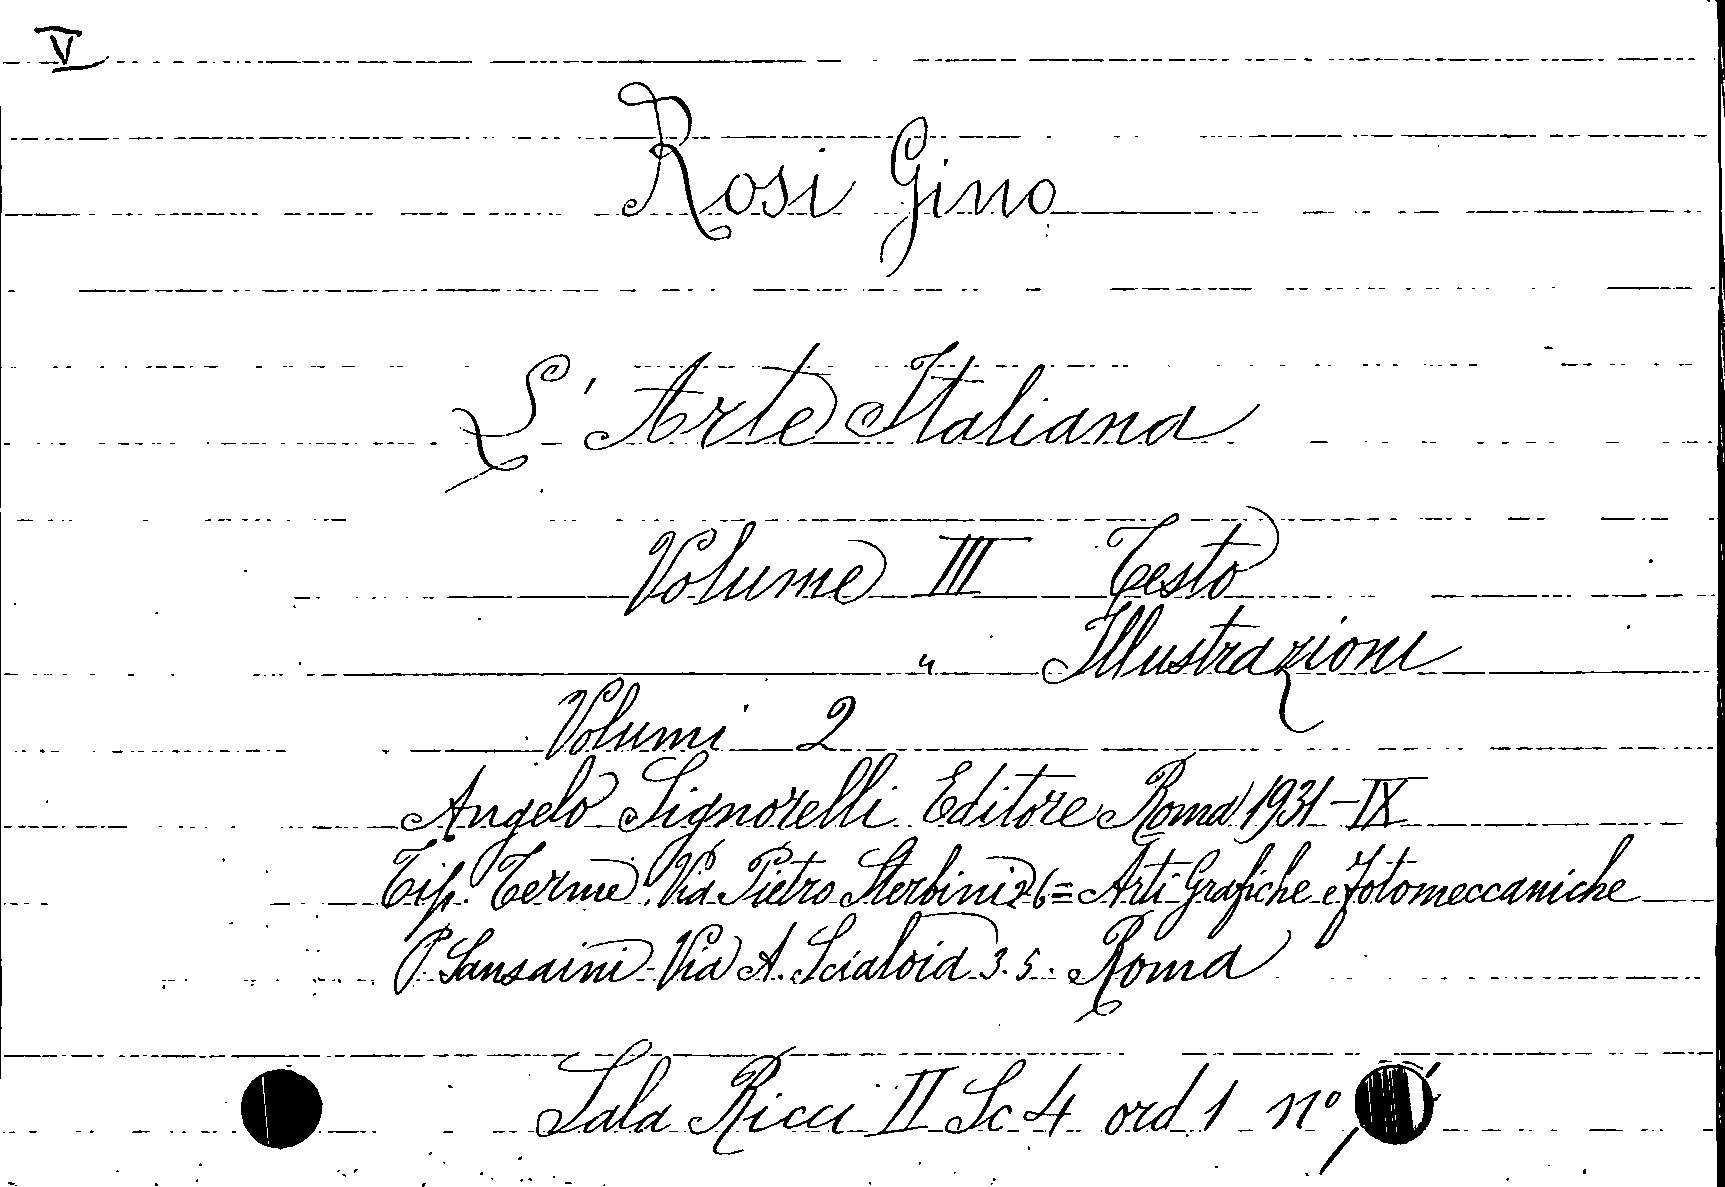 V
Rosi Gino
L'Arte Italiana
Volume III Testo
" Illustrazioni
Volumi 2
Angelo Signorelli Editore Roma 1931-IX
Tip. Terme Via Pietro Sterbini 2-6= Arti Grafiche e fotomeccaniche
P. Sansaini-Via A. Scialoia 3.5. Roma
Sala Ricci II Sc 4 ord 1 n°